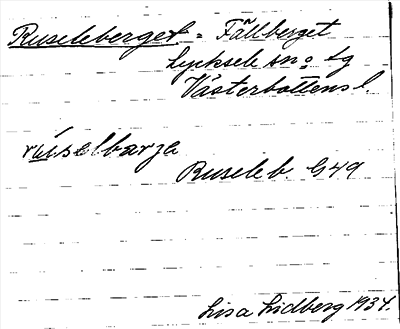 Ruseleberget = Fällberget
Lycksele sn o tg
Västerbottens l.
råuselbærja
Ruseleb. G49
Lisa Lidberg 1934.